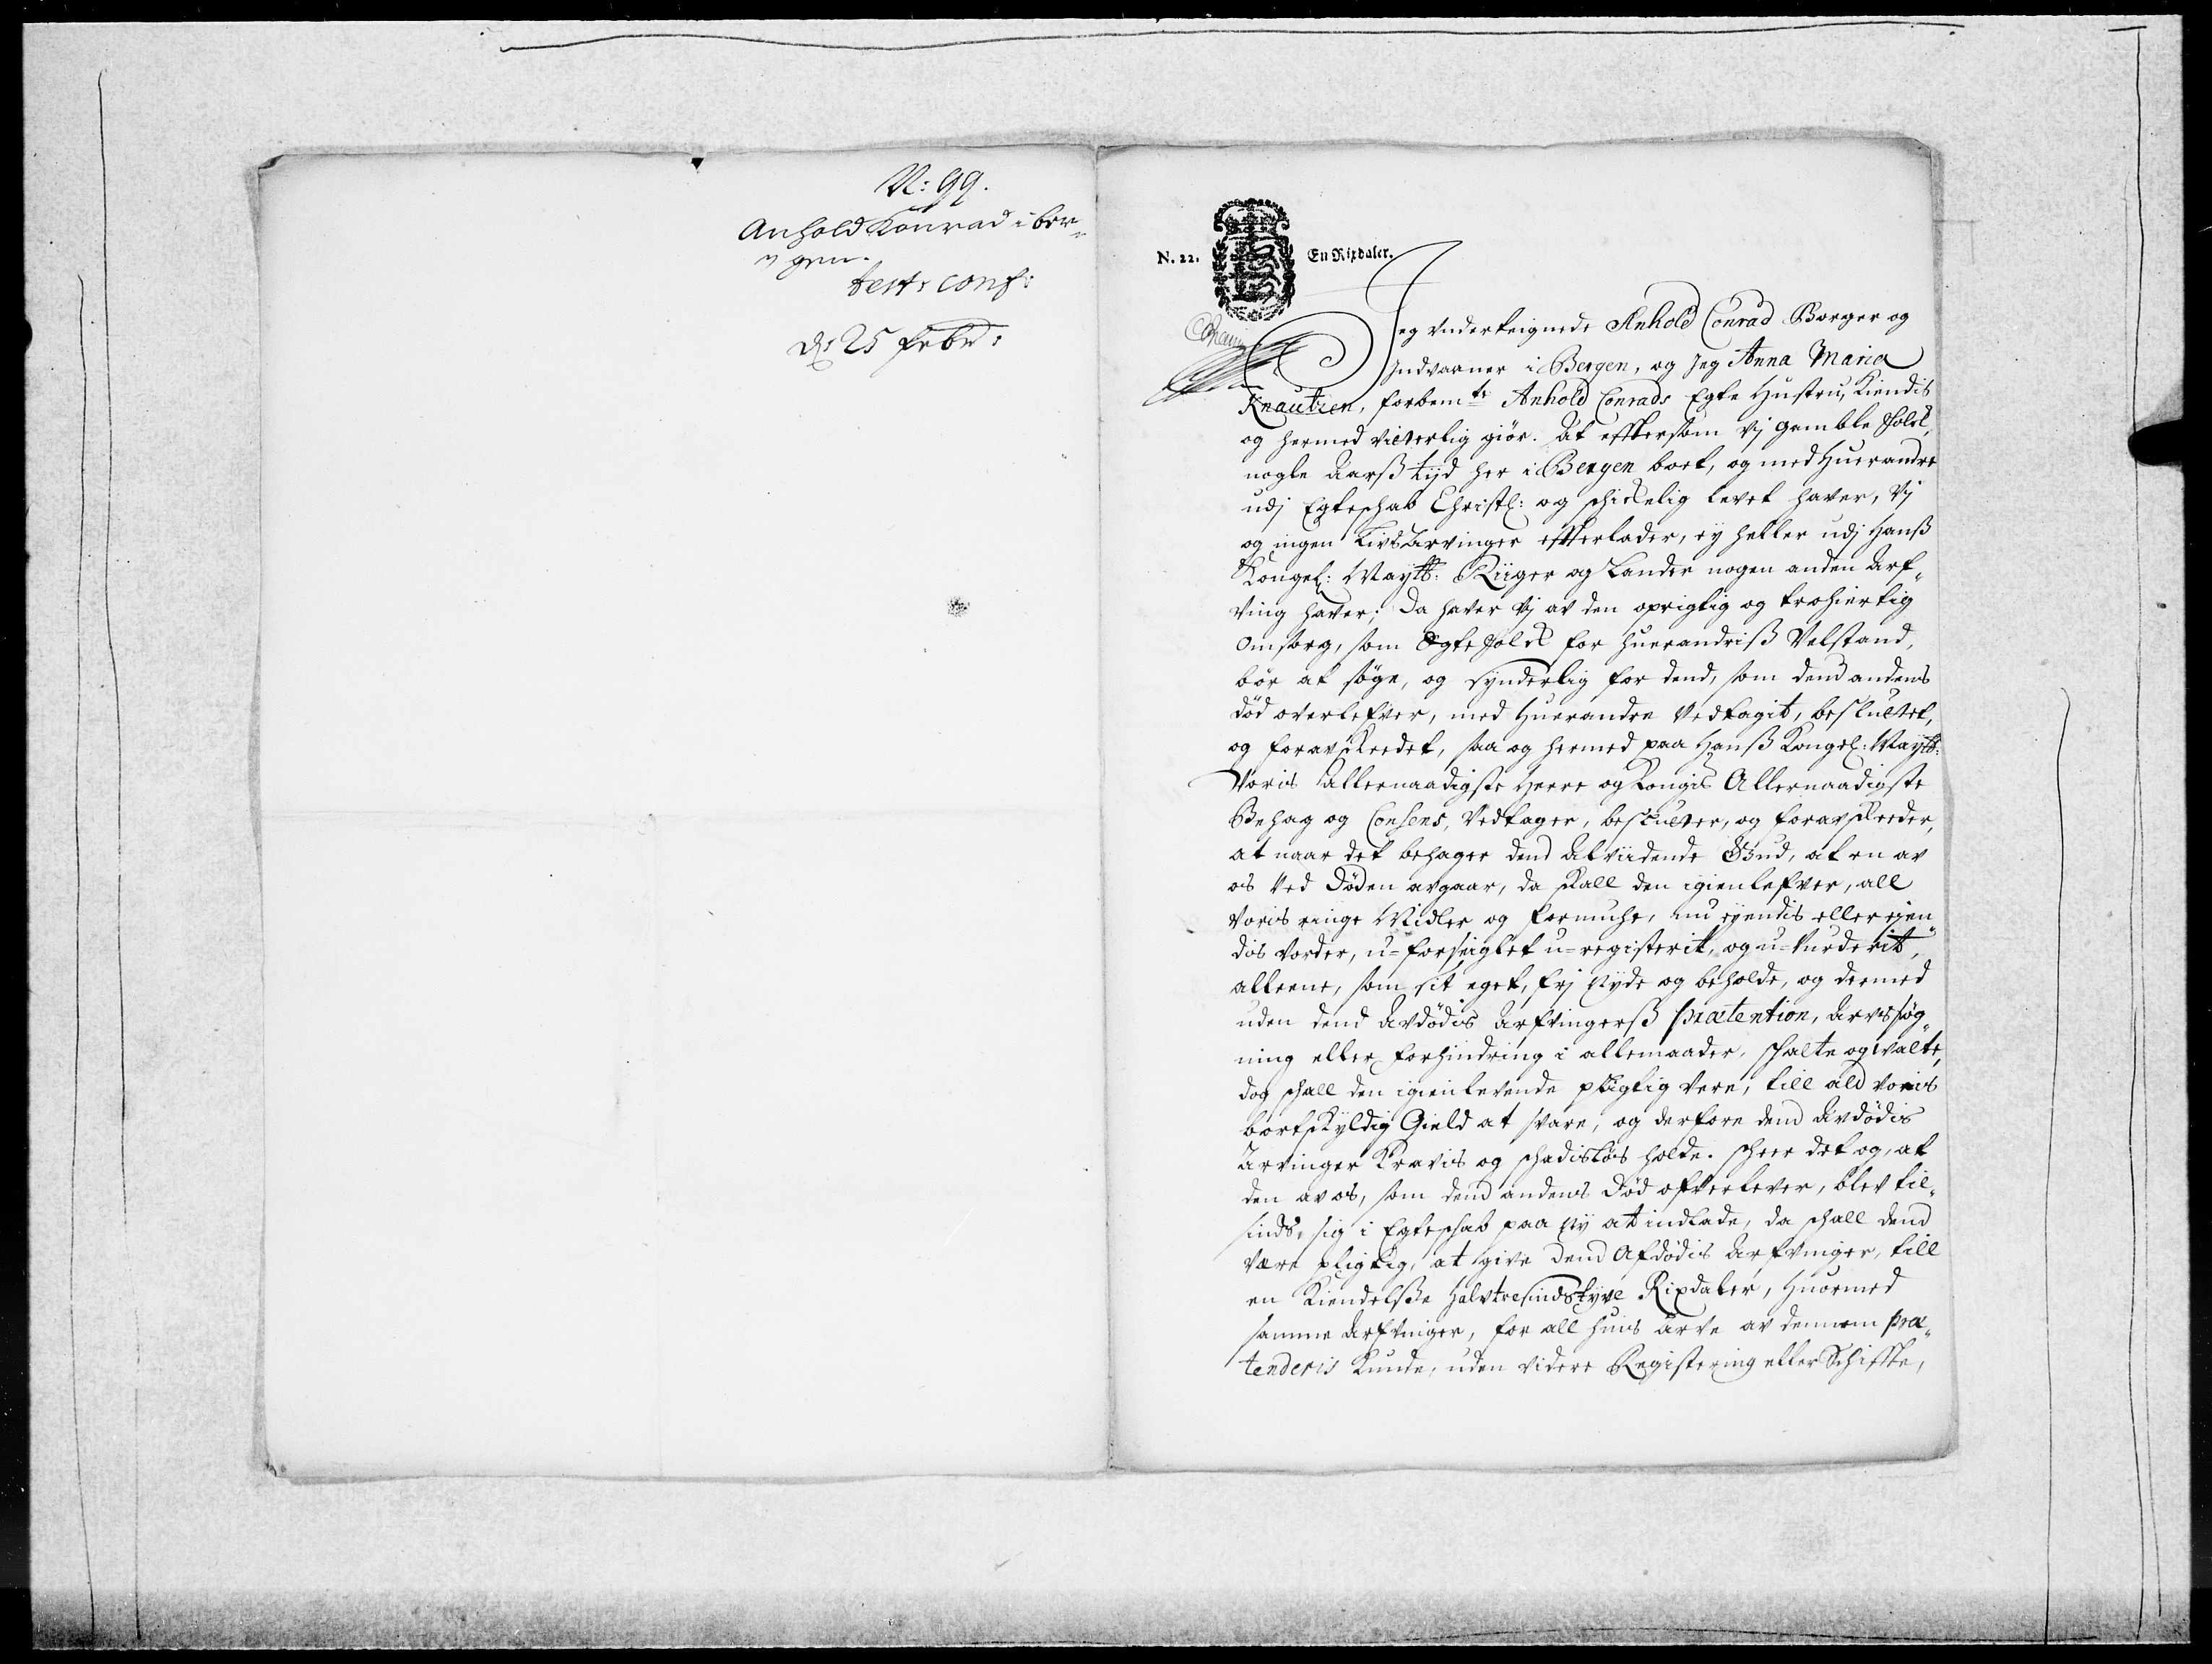 N: 99.
Anhold Konrad i ber-
gen.
test: conf:
d: 25 febr:
N. 22.
En Rixdaler.
Jeg underteignede Anhold Conrad Borger og
Indvaaner i Bergen, og Jeg Anna Maria
Knautzen, forbem:te Anhold Conrads Egte Hustru, Kiendis
og hermed vitterlig giør. At efftersom vj gamble Folck,
nogle Aarß tijd her i Bergen boet, og med Huerandre
udj Egteschab Christl: og schickelig levet haver, vj
og ingen LivsArvinger effterlader, ej heller udj Hanß
Kongel: Maytt: Riiger og Lander nogen anden Arf-
ving haver; Da haver vj av den oprigtig og trohiertig
omsorg, som Egtefolck for huerandriß Velstand,
bør at søge, og synderlig for dend, som dend andens
død overlefver, med Huerandre Vedtagit, besluttet,
og foravskeedet, saa og hermed paa Hanß Kongel: Maytt:
Voris Allernaadigste Herre og Kongis Allernaadigste
Behag og Consens, Vedtager, beslutter, og foravskeeder,
at naar det behager dend Alviidende Gud, at en av
os ved Døden avgaar, da skall den igienlefver, all
Voris ringe Midler og formuhe, nu ejendis eller ejen-
dis vorder, u-forseiglet u-registerit, og u-vurderit,
alleene, som sit eget, frj nyde og beholde, og dermed
uden dend Avdødis Arfvingerß prætention, Arvssøg-
ning eller forhindring i allemaader, schalte og walte,
dog schall den igienlevende pligtig vere, till ald voris
bortskyldig Gield at svare, og derfore dend Avdødis
Arvinger Kravis og schadisløs holde. Scheer det og, at
den av os, som dend andens Død ofverlever, blev til-
sinds, sig i Egteschab paa ny at indlade, da schall dend
være pligtig, at give dend Afdødis Arfvinger, till
en Kiendelsße Halvtresindstyve Rixdaler, Huormed
samme Arfvinger, for all huis Arve av dennem præ-
tenderis Kunde, uden videre Registering eller Schiffte,